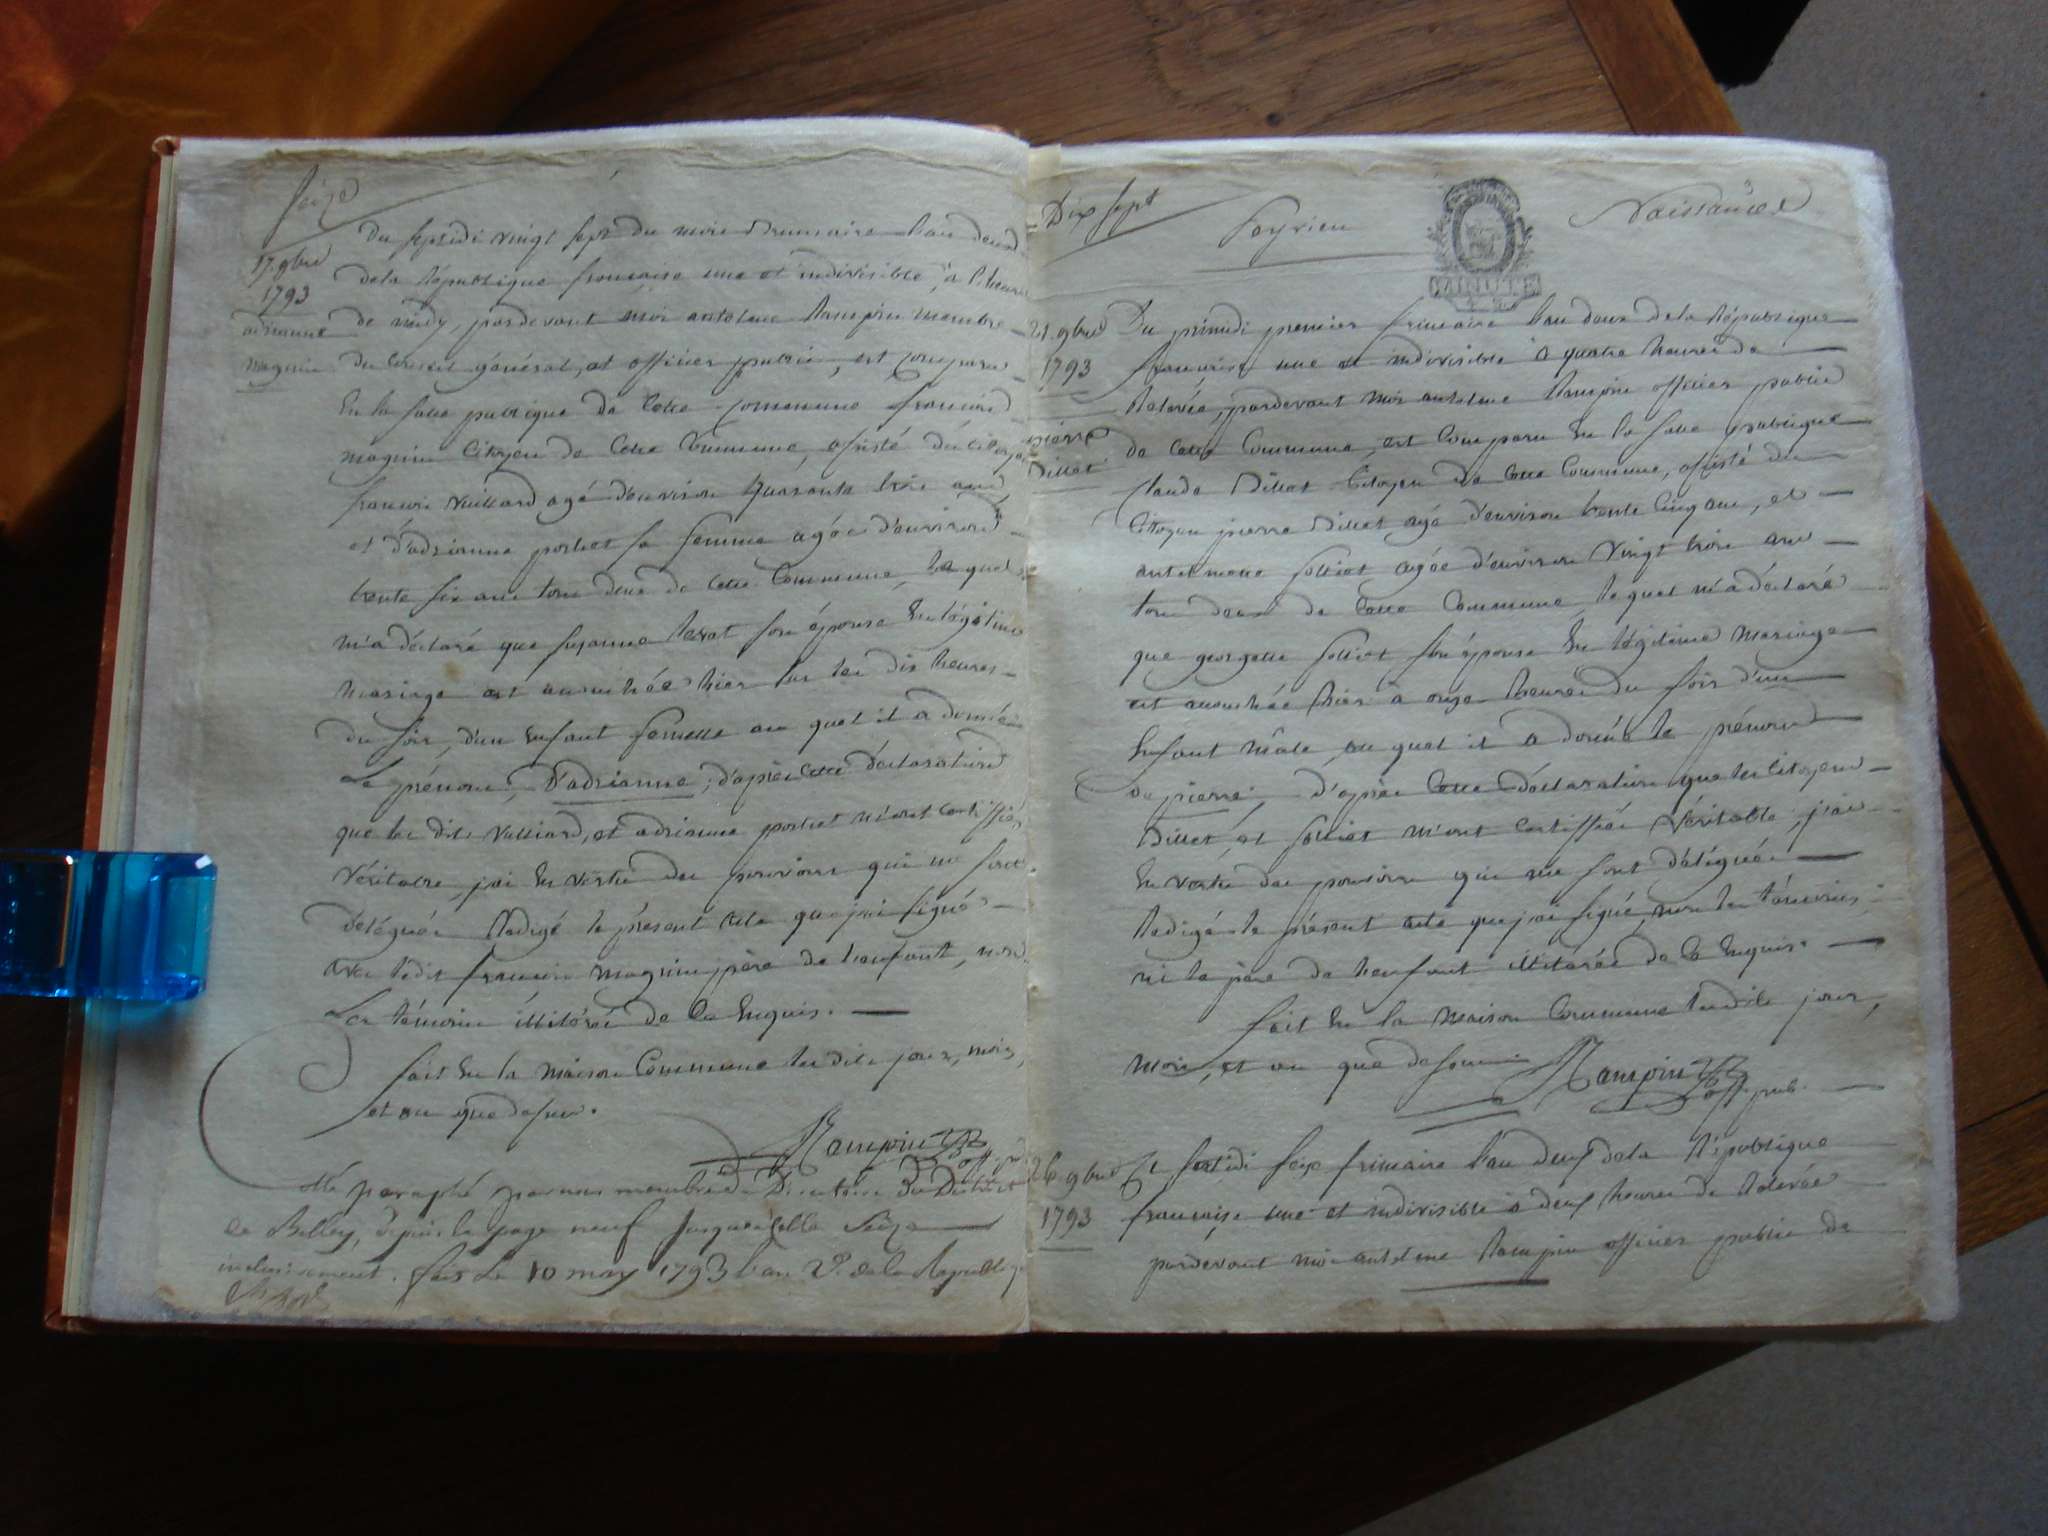 Seize
Du septidi vingt sept du mois Brumaire l'an deux
17 9bre
1793
de la République française une et indivisible, à l'heure
adrianne
magnin
de midy, pardevant moi antelme Rampin membre
du Conseil général, et officier public, est comparu
en la salle publique de Cette Commune françois
magnin Citoyen de Cette Commune, assisté du citoyen
françois Vuilliard agé d'environ quarante trois ans,
et d'adrianne portret sa femme agée d'environ
trente six ans tous deux de Cette Commune, lequel
m'a déclaré que susanne son épouse en légitime
mariage est accouchée hier sur les dix heures
du soir, d'un enfant femelle au quel il a donné
Le prénom, D'adrianne, d'après cette déclaration
que les dits Vuilliard, et adrianne portret m'ont certiffiée
Véritable, j'ai en vertu des pouvoirs qui me sont
délégués Rédigé le présent acte que j'ai signé
avec ledit françois magnin père de l'enfant, non
Les témoins illitérés de ce Enquis.
fait en la maison Commune les dits jour, mois,
et an que dessus.
Rampin off. p.
paraphé par nous membre du Directoire Du District
de Belley, depuis la page neuf jusqu'à celle Seize
inclusivement. fait Le 10 may 1793 l'an 2e de la Republique
Dix sept
Peyrieu
Naissances
MINUTE
21 9bre
1793
Du primidi premier frimaire l'an deux de la République
française une et indivisible à quatre heures de
Relevée, pardevant moi antelme Rampin officier public
pierre
Billiet
de Cette Commune, est Comparu en la salle publique
Claude Billiet Citoyen de Cette Commune, assisté du
Citoyen pierre Billiet agé d'environ trente cinq ans, et
agée d'environ vingt trois ans
tous deux de Cette Commune, lequel m'a déclaré
que georgette son épouse en légitime mariage
est accouchée hier à onze heures du soir d'un
enfant mâle, au quel il a donné le prénom
de pierre, d'après Cette déclaration que les citoyens
Billiet, et m'ont certiffiée Véritable, j'ai
en vertu des pouvoirs qui me sont délégués
Redigé le présent acte que j'ai signé, non les témoins,
ni le père de l'enfant illitérés de ce Enquis.
fait en la maison Commune les dits jour,
mois, et an que dessus. Rampin
off. pub.
26 9bre
1793
six frimaire l'an deux de la République
française une et indivisible à deux heures de Relevée
pardevant moi antelme Rampin officier public de